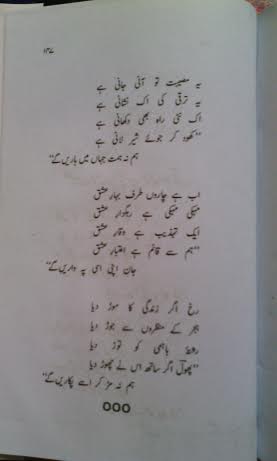 ۱۳۷
یہ مصیبت تو آنی جانی ہے
یہ ترقی کی اک نشانی ہے
اک نئی راہ بھی دکھانی ہے
”کھود کر جوئے شیر لانی ہے
ہم نہ ہمت جہاں میں ہاریں گے“
اب ہے چاروں طرف بہارِ عشق
مہکی مہکی ہے رہگزارِ عشق
ایک تہذیب ہے وقارِ عشق
”ہم سے قائم ہے اعتبارِ عشق
جان اپنی اسی پہ واریں گے“
رخ اگر زندگی کا موڑ دیا
ہجر کے منظروں سے جوڑ دیا
باہمی کو توڑ دیا
”پھولؔ اگر ساتھ اس نے چھوڑ دیا
ہم نہ مڑ کر اسے پکاریں گے“